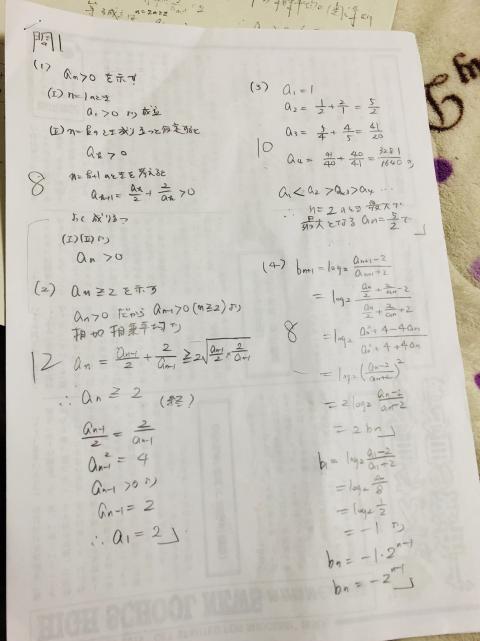 問1
(1)
an>0 を示す
(I) n=1のとき
a1>0 より成立
(II) n=kのとき成り立つと仮定すると
ak>0
n=k+1のときを考えると
ak+1=ak/2+2/ak>0
よって成り立つ
(I)(II)より
an>0
8
(2) an≧2を示す
an>0だからan-1>0(n≧2)より
相加相乗平均より
12
an=an-1/2+2/an-1≧2√(an-1/2×2/an-1)
∴an≧2 (終)
an-1/2=2/an-1
an-1²=4
an-1>0より
an-1=2
∴a1=2
(3) a1=1
a2=1/2+2/1=5/2
a3=5/4+4/5=41/20
10
a4=41/40+40/41=3281/1640より
a1<a2>a3>a4…
∴n=2のとき最大で
最大となるan=5/2で
(4) bn+1=log2 an+1-2/an+1+2
=log2 (an/2+2/an-2)/(an/2+2/an+2)
8
=log2 an²+4-4an/an²+4+4an
=log2(an-2/an+2)²
=2log2 an-2/an-2
=2bn
b1=log2 a1-2/a1+2
=log2 1/2
=-1より
bn=-1·2^(n-1)
bn=-2^(n-1)
HIGH SCHOOL NEWS